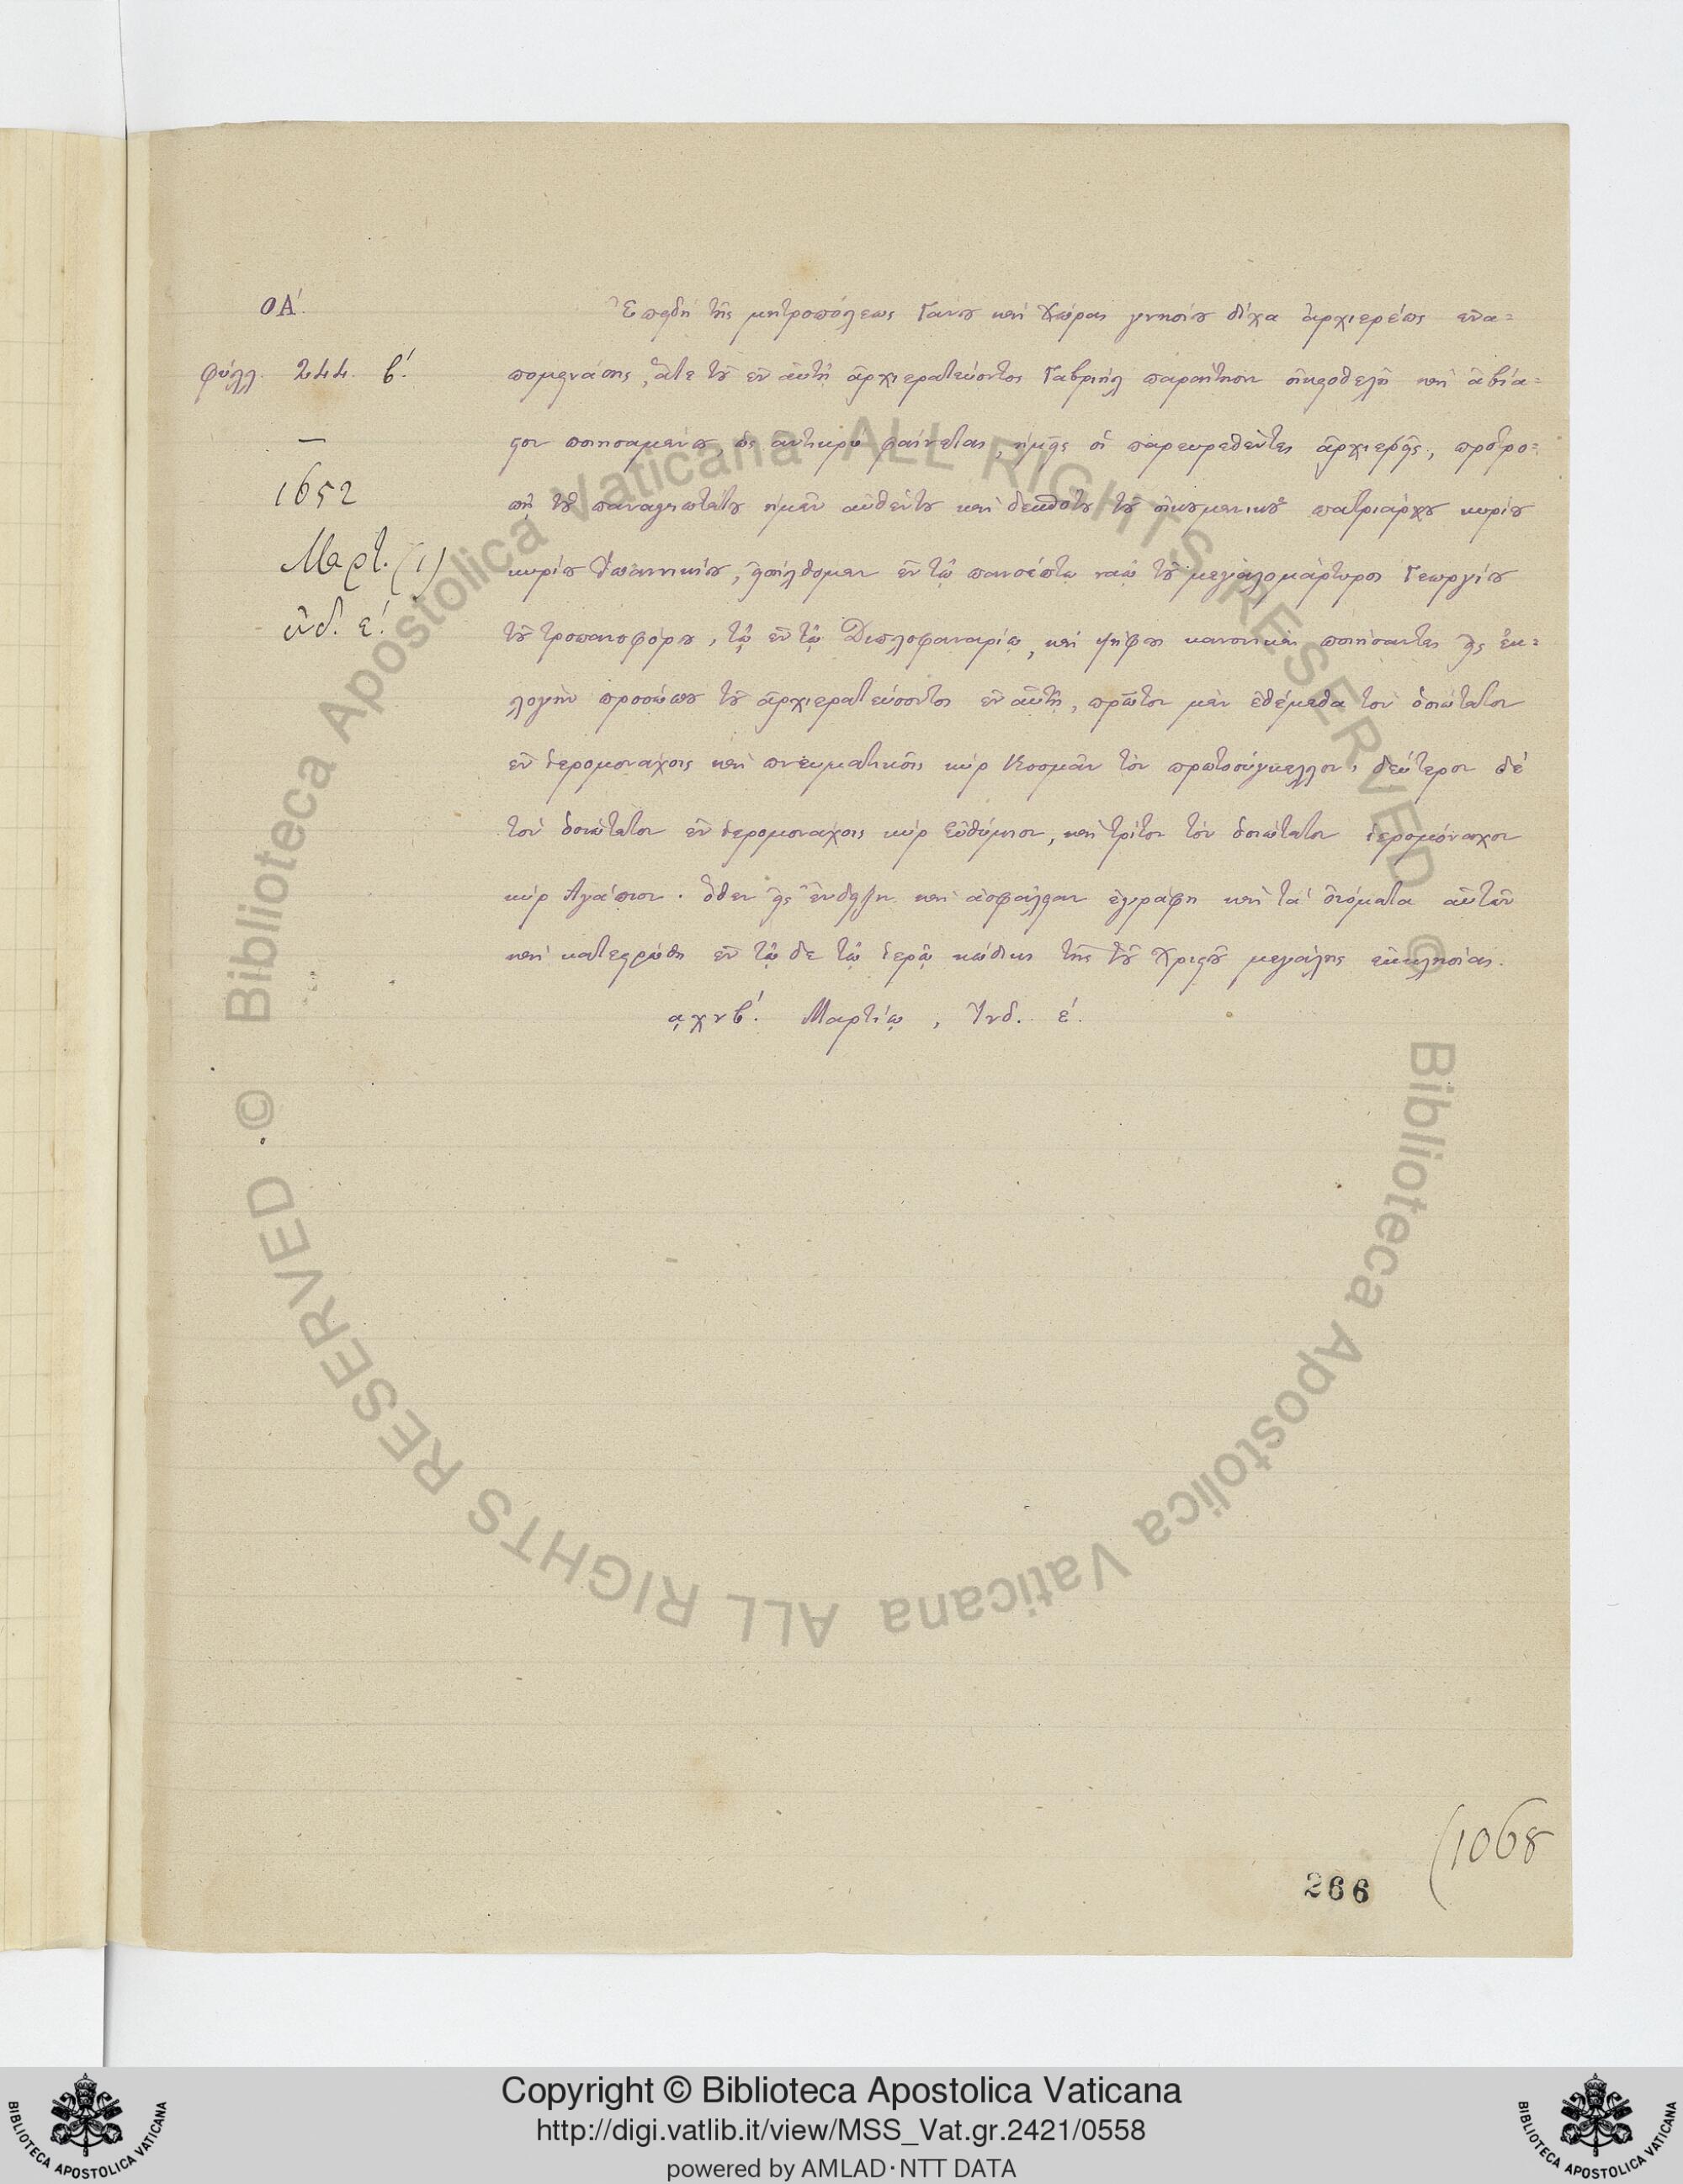 ΟΑ΄.
φύλλ. 244 β΄.
1652
Μαρτ. (1)
ἰνδ. ε΄.
Ἐπειδὴ τῆς μητροπόλεως Γάνου καὶ Χώρας γνησίου δίχα ἀρχιερέως ἐνα=
πομεινάσης, ἅτε τοῦ ἐν αὐτῇ ἀρχιερατεύοντος Γαβριὴλ παραίτησιν οἰκειοθελῆ καὶ ἀβία=
στον ποιησαμένου, ὡς ἀντικρὺ φαίνεται, ἡμεῖς οἱ παρευρεθέντες ἀρχιερεῖς, προτρο=
πῇ τοῦ παναγιωτάτου ἡμῶν αὐθέντου καὶ δεσπότου τοῦ οἰκουμενικοῦ πατριάρχου κυρίου
κυρίου Ἰωαννικίου, εἰσήλθομεν ἐν τῷ πανσέπτῳ ναῷ τοῦ μεγαλομάρτυρος Γεωργίου
τοῦ τροπαιοφόρου, τῷ ἐν τῷ Διπλοφαναρίῳ, καὶ ψήφους κανονικὰς ποιήσαντες εἰς ἐκ=
λογὴν προσώπου τοῦ ἀρχιερατεύσοντος ἐν αὐτῇ, πρῶτον μὲν ἐθέμεθα τὸν ὁσιώτατον
ἐν ἱερομονάχοις καὶ πνευματικοῖς κὺρ Κοσμᾶν τὸν πρωτοσύγκελλον, δεύτερον δέ
τὸν ὁσιώτατον ἐν ἱερομονάχοις κὺρ Εὐθύμιον, καὶ τρίτον τὸν ὁσιώτατον ἱερομόναχον
κὺρ Ἀγάπιον. ὅθεν εἰς ἔνδειξιν καὶ ἀσφάλειαν ἐγράφη καὶ τὰ ὀνόματα αὐτῶν
καὶ κατεστρώθη ἐν τῷδε τῷ ἱερῷ κώδικι τῆς τοῦ Χριστοῦ μεγάλης ἐκκλησίας.
͵αχνβ΄. Μαρτίῳ, Ἰνδ. ε΄.
(1068
266
© Biblioteca Apostolica Vaticana ALL RIGHTS RESERVED
© Biblioteca Apostolica Vaticana ALL RIGHTS RESERVED
Copyright © Biblioteca Apostolica Vaticana
http://digi.vatlib.it/view/MSS_Vat.gr.2421/0558
powered by AMLAD·NTT DATA
BIBLIOTECA APOSTOLICA VATICANA
BIBLIOTECA APOSTOLICA VATICANA